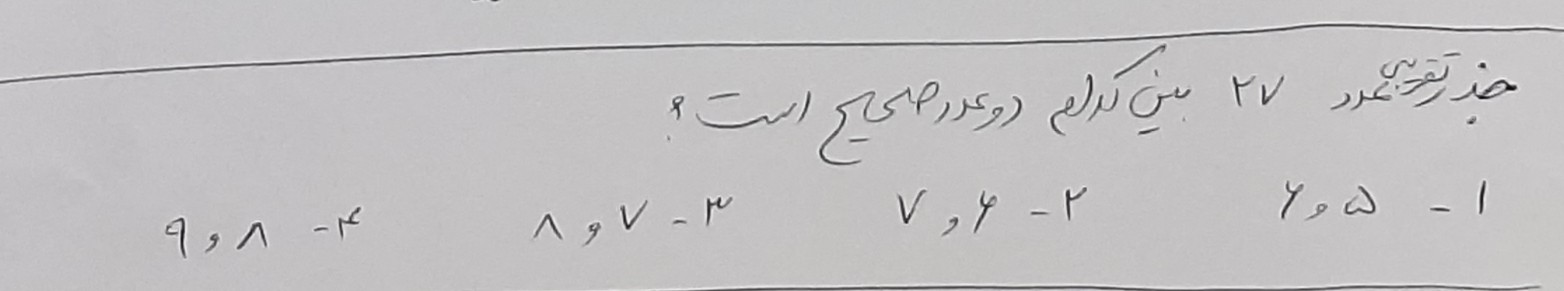 جذر تقریبی عدد ۲۷ بین کدام دو عدد صحیح است؟
۱ - ۵ و ۶   ۲ - ۶ و ۷   ۳ - ۷ و ۸   ۴ - ۸ و ۹